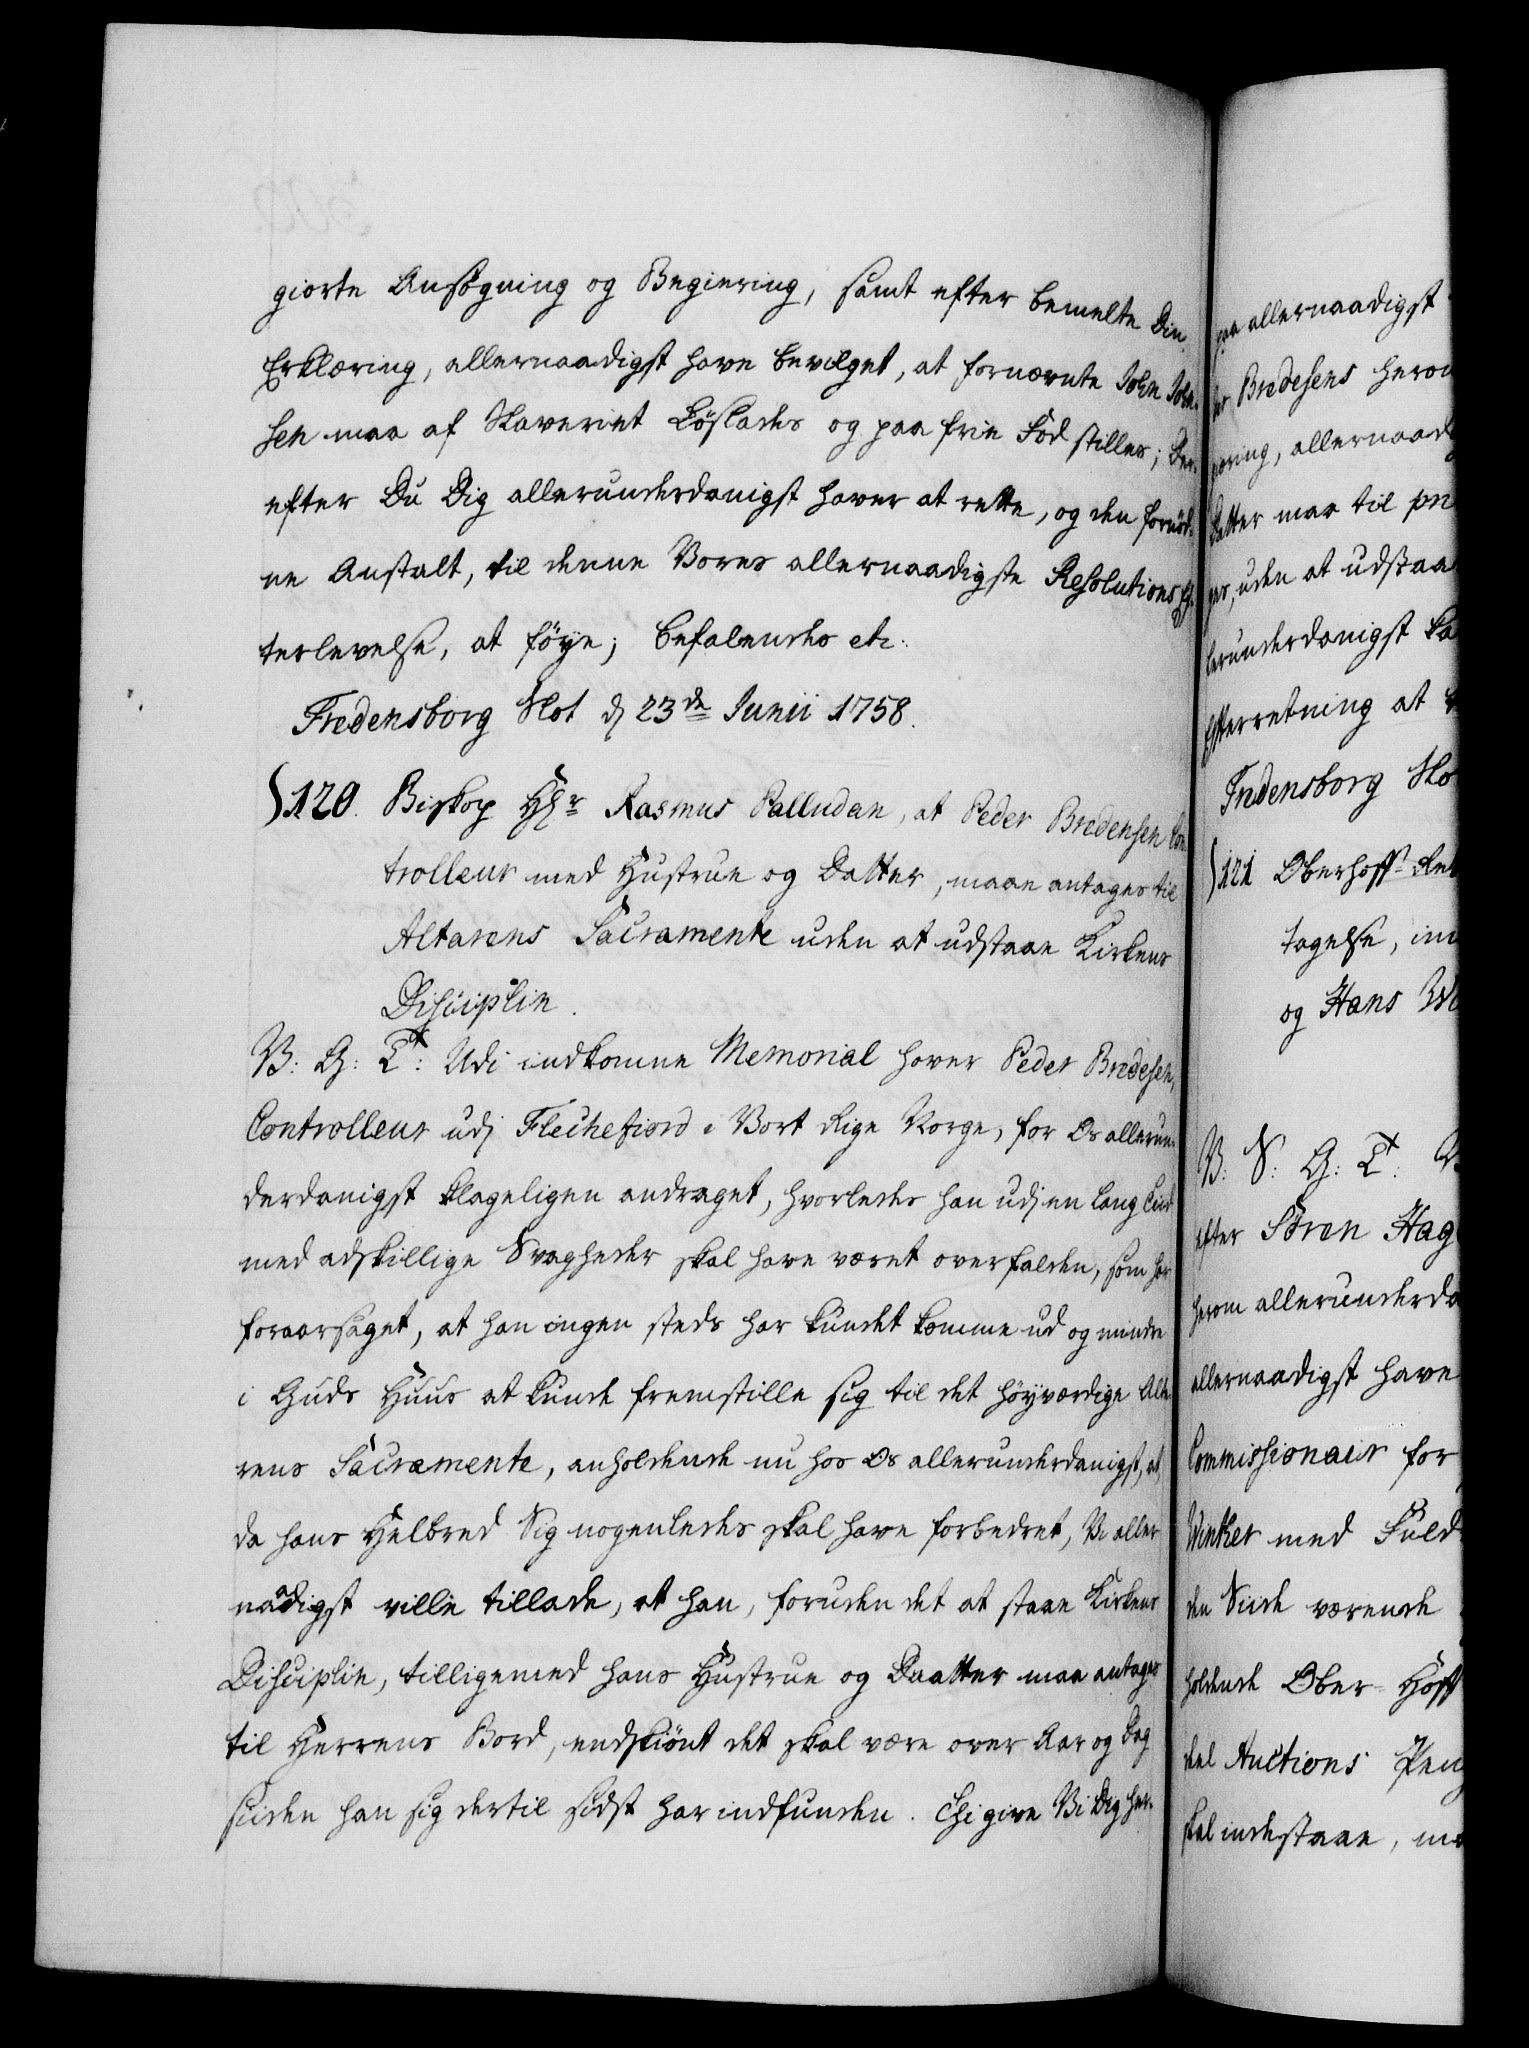 giorte Ansøgning og Begiering, samt efter bemelte Din
Erklæring, allernaadigst have bevilget, at fornævnte John John-
sen maa af Slaveriet Løslades og paa frie Fod stilles; Der-
efter Du Dig allerunderdanigst haver at rette, og den fornød-
ne Anstalt, til denne Vores allernaadigste Resolutions Ef-
terlevelse, at føye; befalendes etc:
Fredensborg Slot d 23de Junii 1758.
120. Biskop Hr Rasmus Palludan, at Peder Bredensen Con-
trolleur med Hustrue og Datter, maae antages til
Altarens Sacramente uden at udstaae Kirkens
Disciplin.
V: G: T: Udi indkomne Memorial haver Peder Bredesen,
Controlleur udj Flechefiord i Vort Rige Norge, for Os allerun-
derdanigst klageligen andraget, hvorledes han udj en lang Tiid
med adskillige Svagheder skal have været overfalden, som har
foraarsaget, at han ingen steds har kundet komme ud og mindre
i Guds Huus at kunde fremstille sig til det høyværdige Alte-
rens Sacramente, anholdende nu hos Os allerunderdanigst, at,
da hans Helbred Sig nogenledes skal have forbedret, Vi aller
naadigst ville tillade, at han, foruden det at staae Kirkens
Disciplin, tilligemed hans Hustrue og Daatter maa antages
til Herrens Bord, endskiønt det skal være over Aar og Dag
siiden han sig dertil sidst har indfunden. Thi give Vi Dig her-
paa allernaadigst
Bredesens herom
æring, allernaad
Datter maa til
ges, uden at udstaae
lerunderdanigst
Efterretning at
Fredensborg Slo
121 Oberhoff-
tagelse,
og Hans
V: S: G: T:
efter Søren Hag
herom allerunderda
allernaadigst have
Commissionair for
Winther med Fuld
den Siide værende
holdende Ober-Hoff
deel Auctions Peng
skal indestaae,